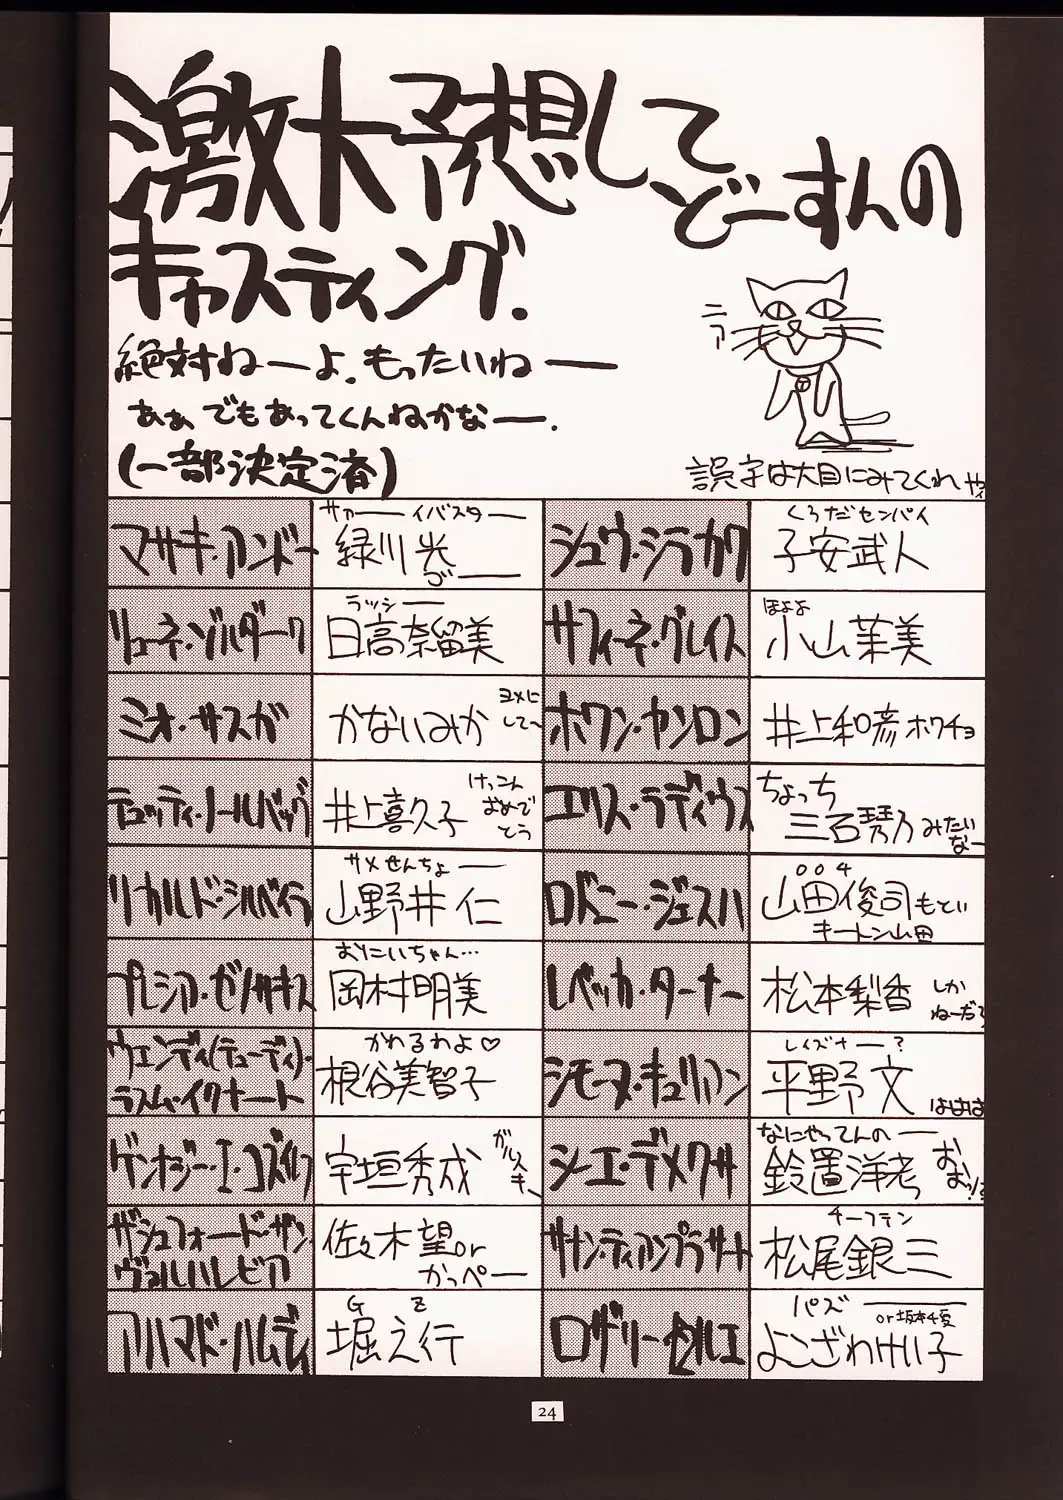 激大予想してどーすんの
キャスティング.
絶対ねーよ.もったいねー
あぁ でもあってくんねかなー.
(一部決定済)
ニァ
誤字は大目にみてくれやィ
マサキ・アンドー
サァーーイバスター
緑川光
ゴーー
シュウ・シラカワ
くろだセンパイ
子安武人
リューネ・ゾルダーク
ラッシー
日高奈留美
サフィーネ・グレイス
ほよよ
小山茉美
ミオ・サスガ
かないみか
ヨメに
して〜
ホワン・ヤンロン
井上和彦 ホワチョ
テュッティ・ノールバック
井上喜久子
けっこん
おめで
とう
エリス・ラディウス
ちょっち
三石琴乃 みたい
なー
リカルド・シルベイラ
サメせんちょー
山野井 仁
ロドニー・ジェスハ
004
山田俊司 もとい
キートン山田
プレシア・ゼノサキス
おにいちゃん…
岡村明美
レベッカ・ターナー
松本梨香 しか
ねーだろ
ウェンディ(テューディ)・
ラスム・イクナート
かわるわよ♡
根谷美智子
シモーヌ・キュリアン
レイズナー?
平野 文
ははは
ゲンナジー・I・コズイレフ
宇垣秀成
ガルス
キー
シーエ・デメクサ
なにやってんのー
鈴置洋孝
おおッ!?
ザシュフォード・ザン・
ヴァルハレビア
佐々木 望or
かっぺー
サナン・ティアンプラサート
チーフテン
松尾銀三
アハマド・ハムディ
G Z
堀之行
ロザリー・セルエ
パズー
or坂本千夏
よこざわけい子
24